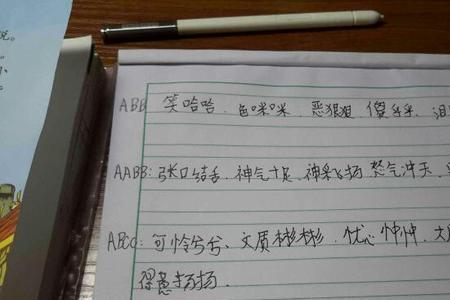 说。
小
ABB 笑哈哈、色咪咪、恶狠狠、傻乎乎、泪
AABB:张口结舌、神气十足、神采飞扬 怒气冲天、
ABCC:可怜兮兮、文质彬彬、忧心忡忡、
得意扬扬.